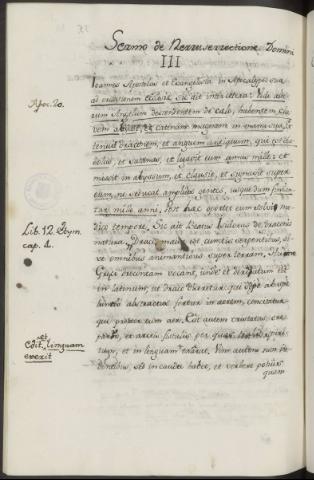 Sermo de Resurrectione Domini
III
Ioannes Apostolus et Evangelista in Apocalypsi sua
Apoc. 20.
ait: Vidi alte-
rum Angelum descendentem de cælo, habentem cla-
vem abyssi, et catenam magnam in manu sua, et
tenuit draconem, et anguem antiquum, qui est dia-
bolus, et Satanas, et ligavit eum annis mille: et
misit in abyssum, et clausit, et signavit super
eum, ne seducat amplius gentes, usque dum finian-
tur mille anni, post hæc oportet eum solvi mo-
dico tempore. Sic ait Beatus Isidorus de draconis
Lib. 12. Etym.
cap. 4.
natura: Draco maior est cunctis serpentibus, si-
ve omnibus animantibus super terram, hunc
Græci draconem vocant, unde et derivatum est
in latinum, ut draco diceretur: qui sæpe ab spe-
luncis abstractus fertur in aerem, concitatur-
que propter eum aer. Est autem cristatus, ore
parvo, et arctis fistulis per quas spiri-
et
Edit. linguam
exerit
tum, et linguam exerat. Vim autem non in
dentibus, sed in cauda habet, et verbere potius
quam